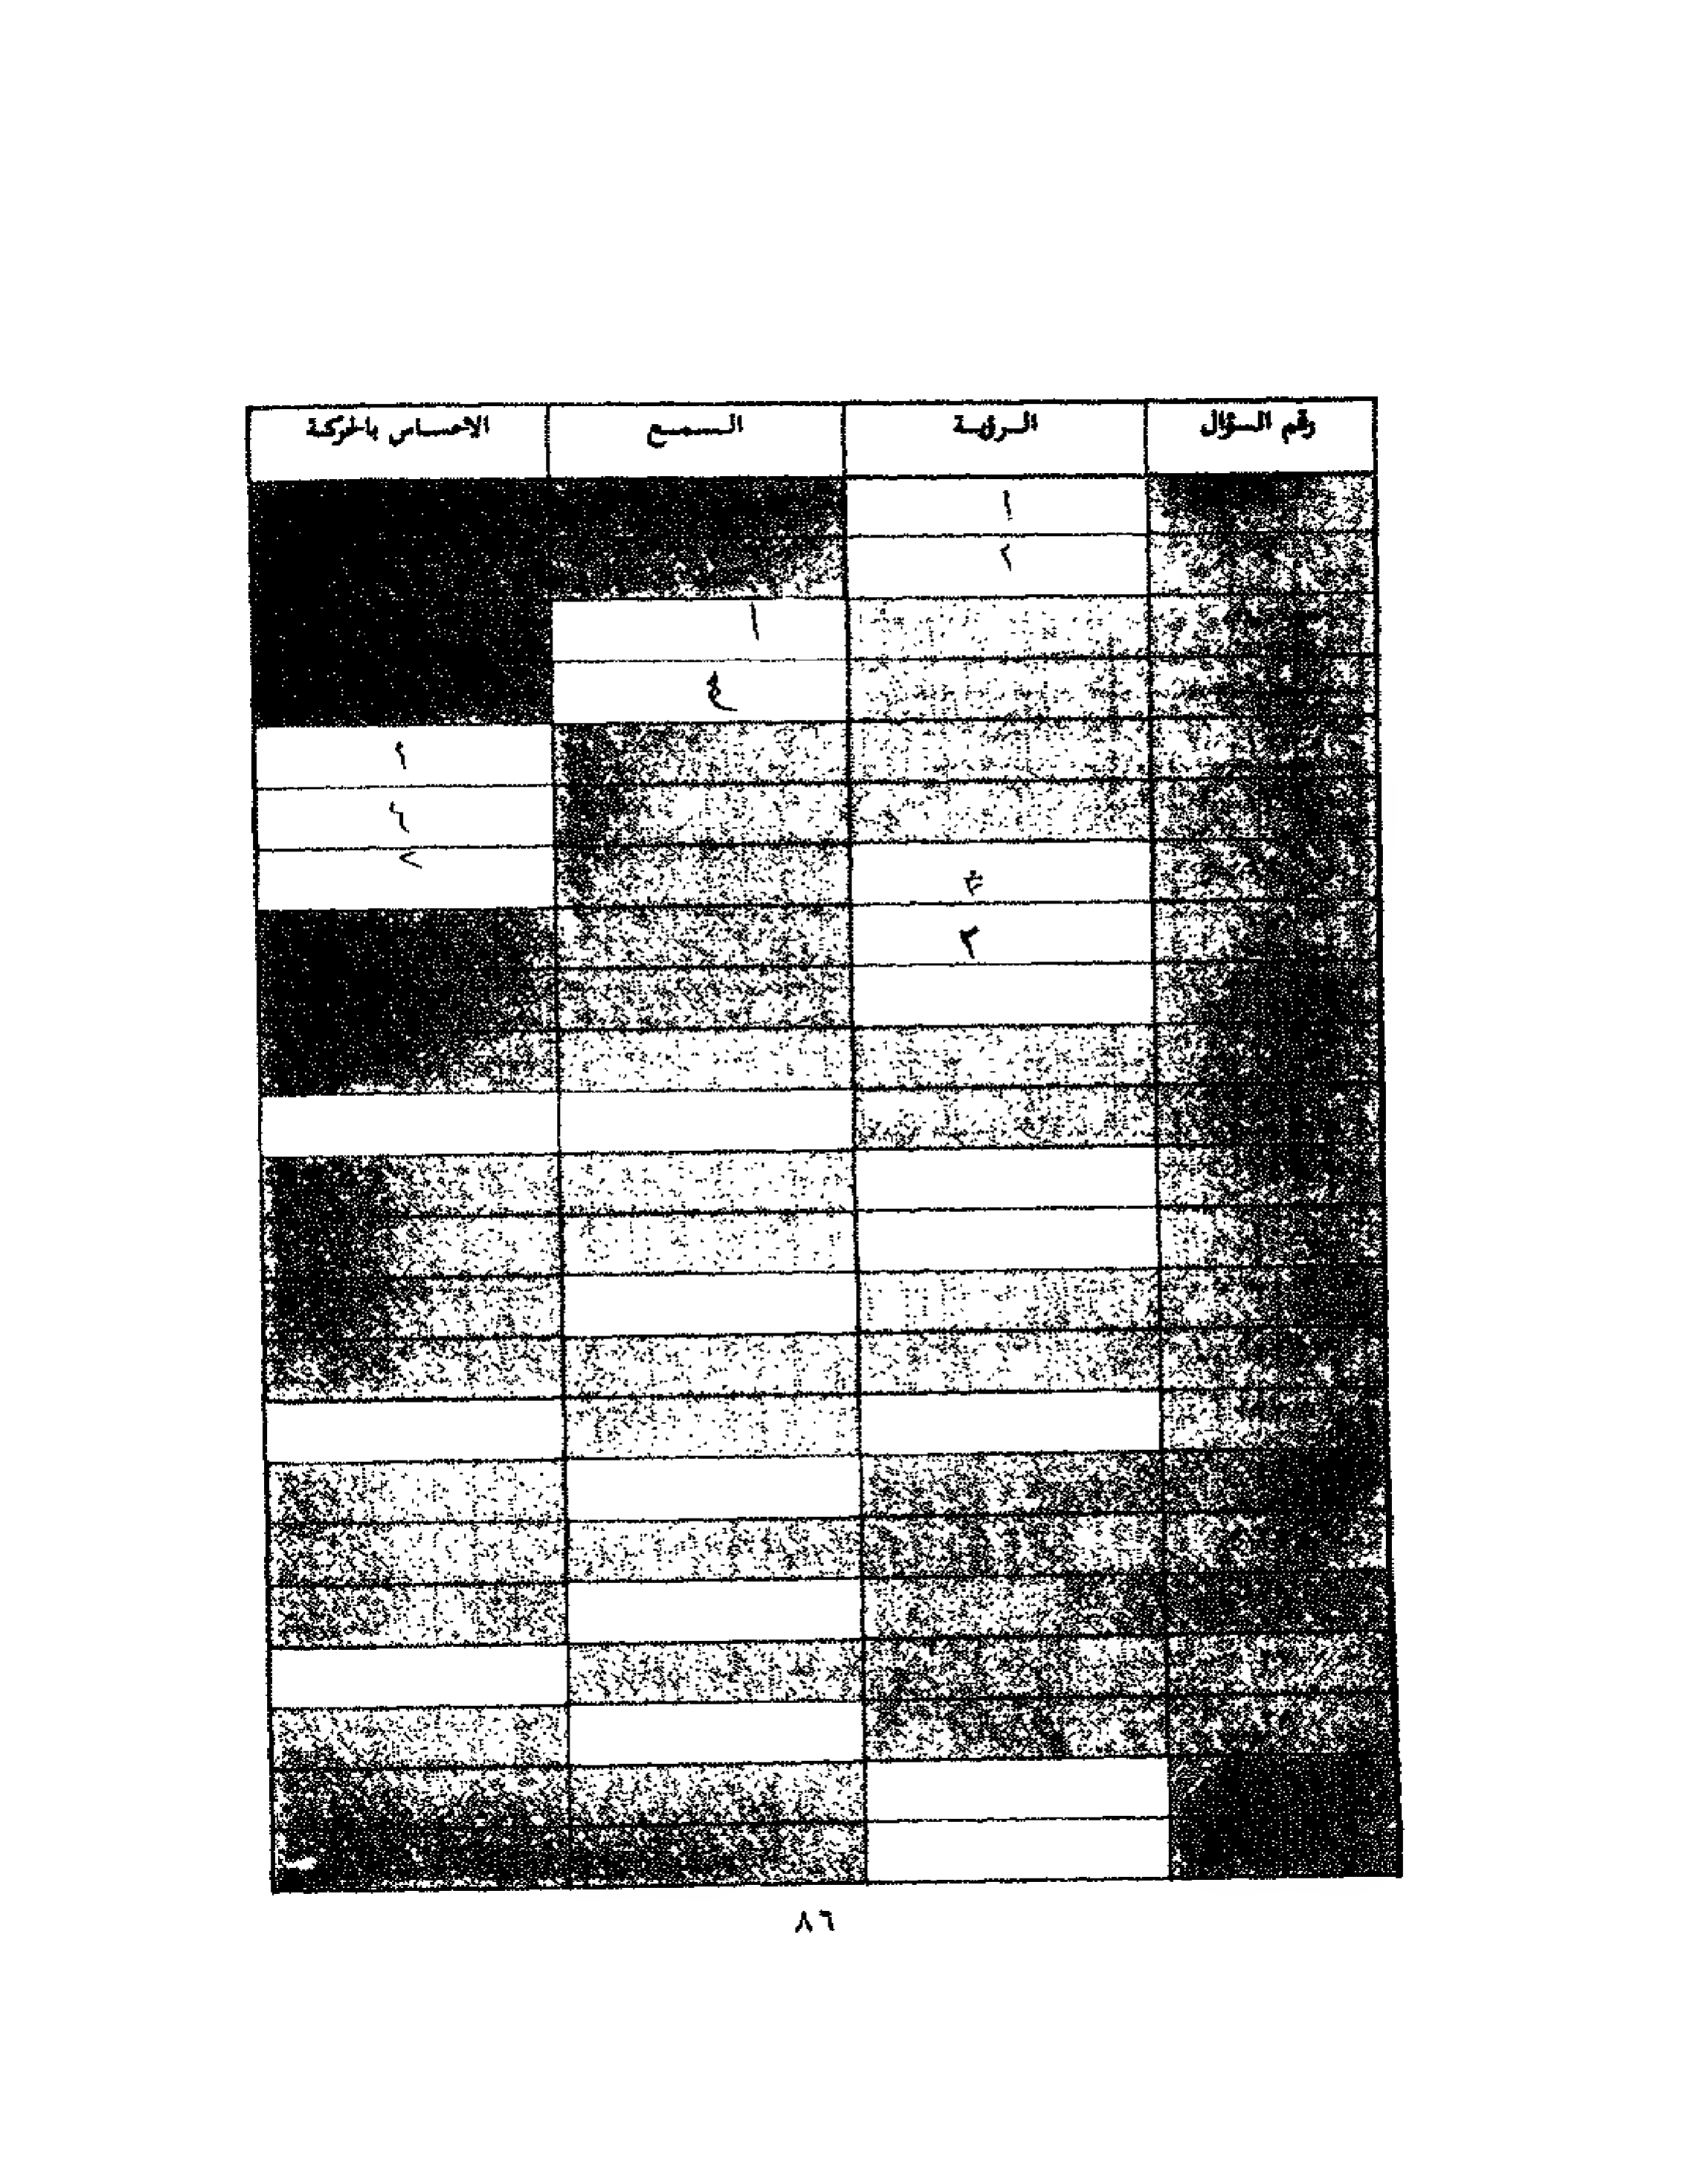 رقم السؤال الرؤية السمع الاحساس بالحركة
١
٢
١
٤
١
٢
٨٦